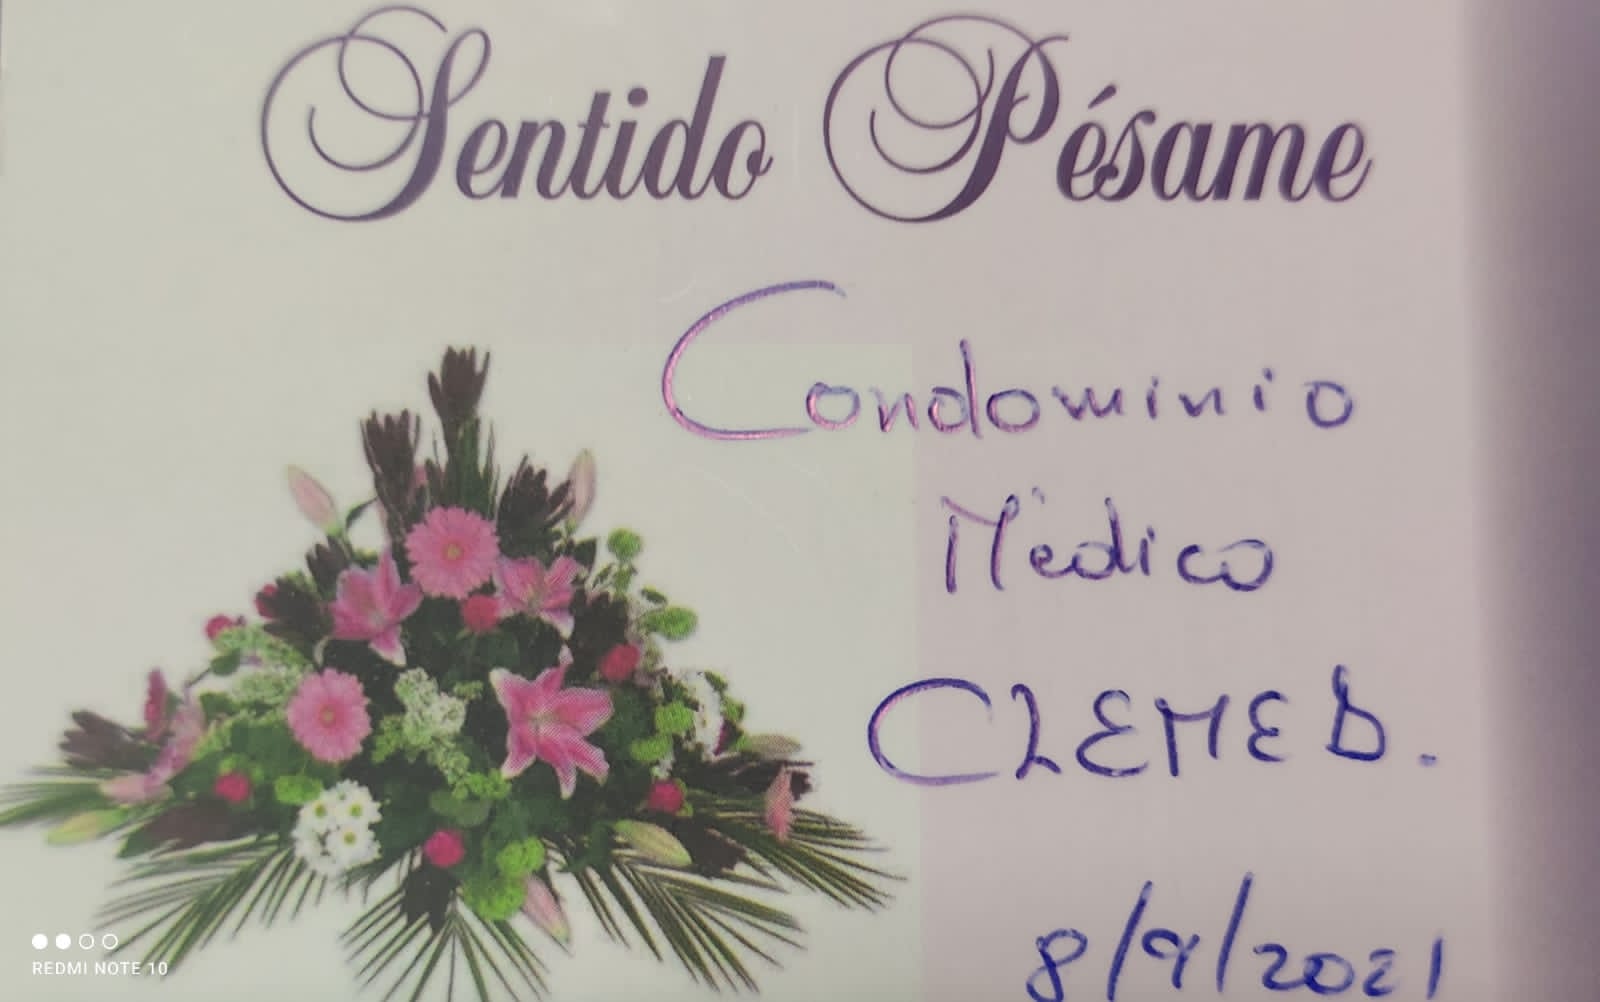 Sentido Pésame
Condominio
Médico
CLEMED.
8/9/2021
REDMI NOTE 10